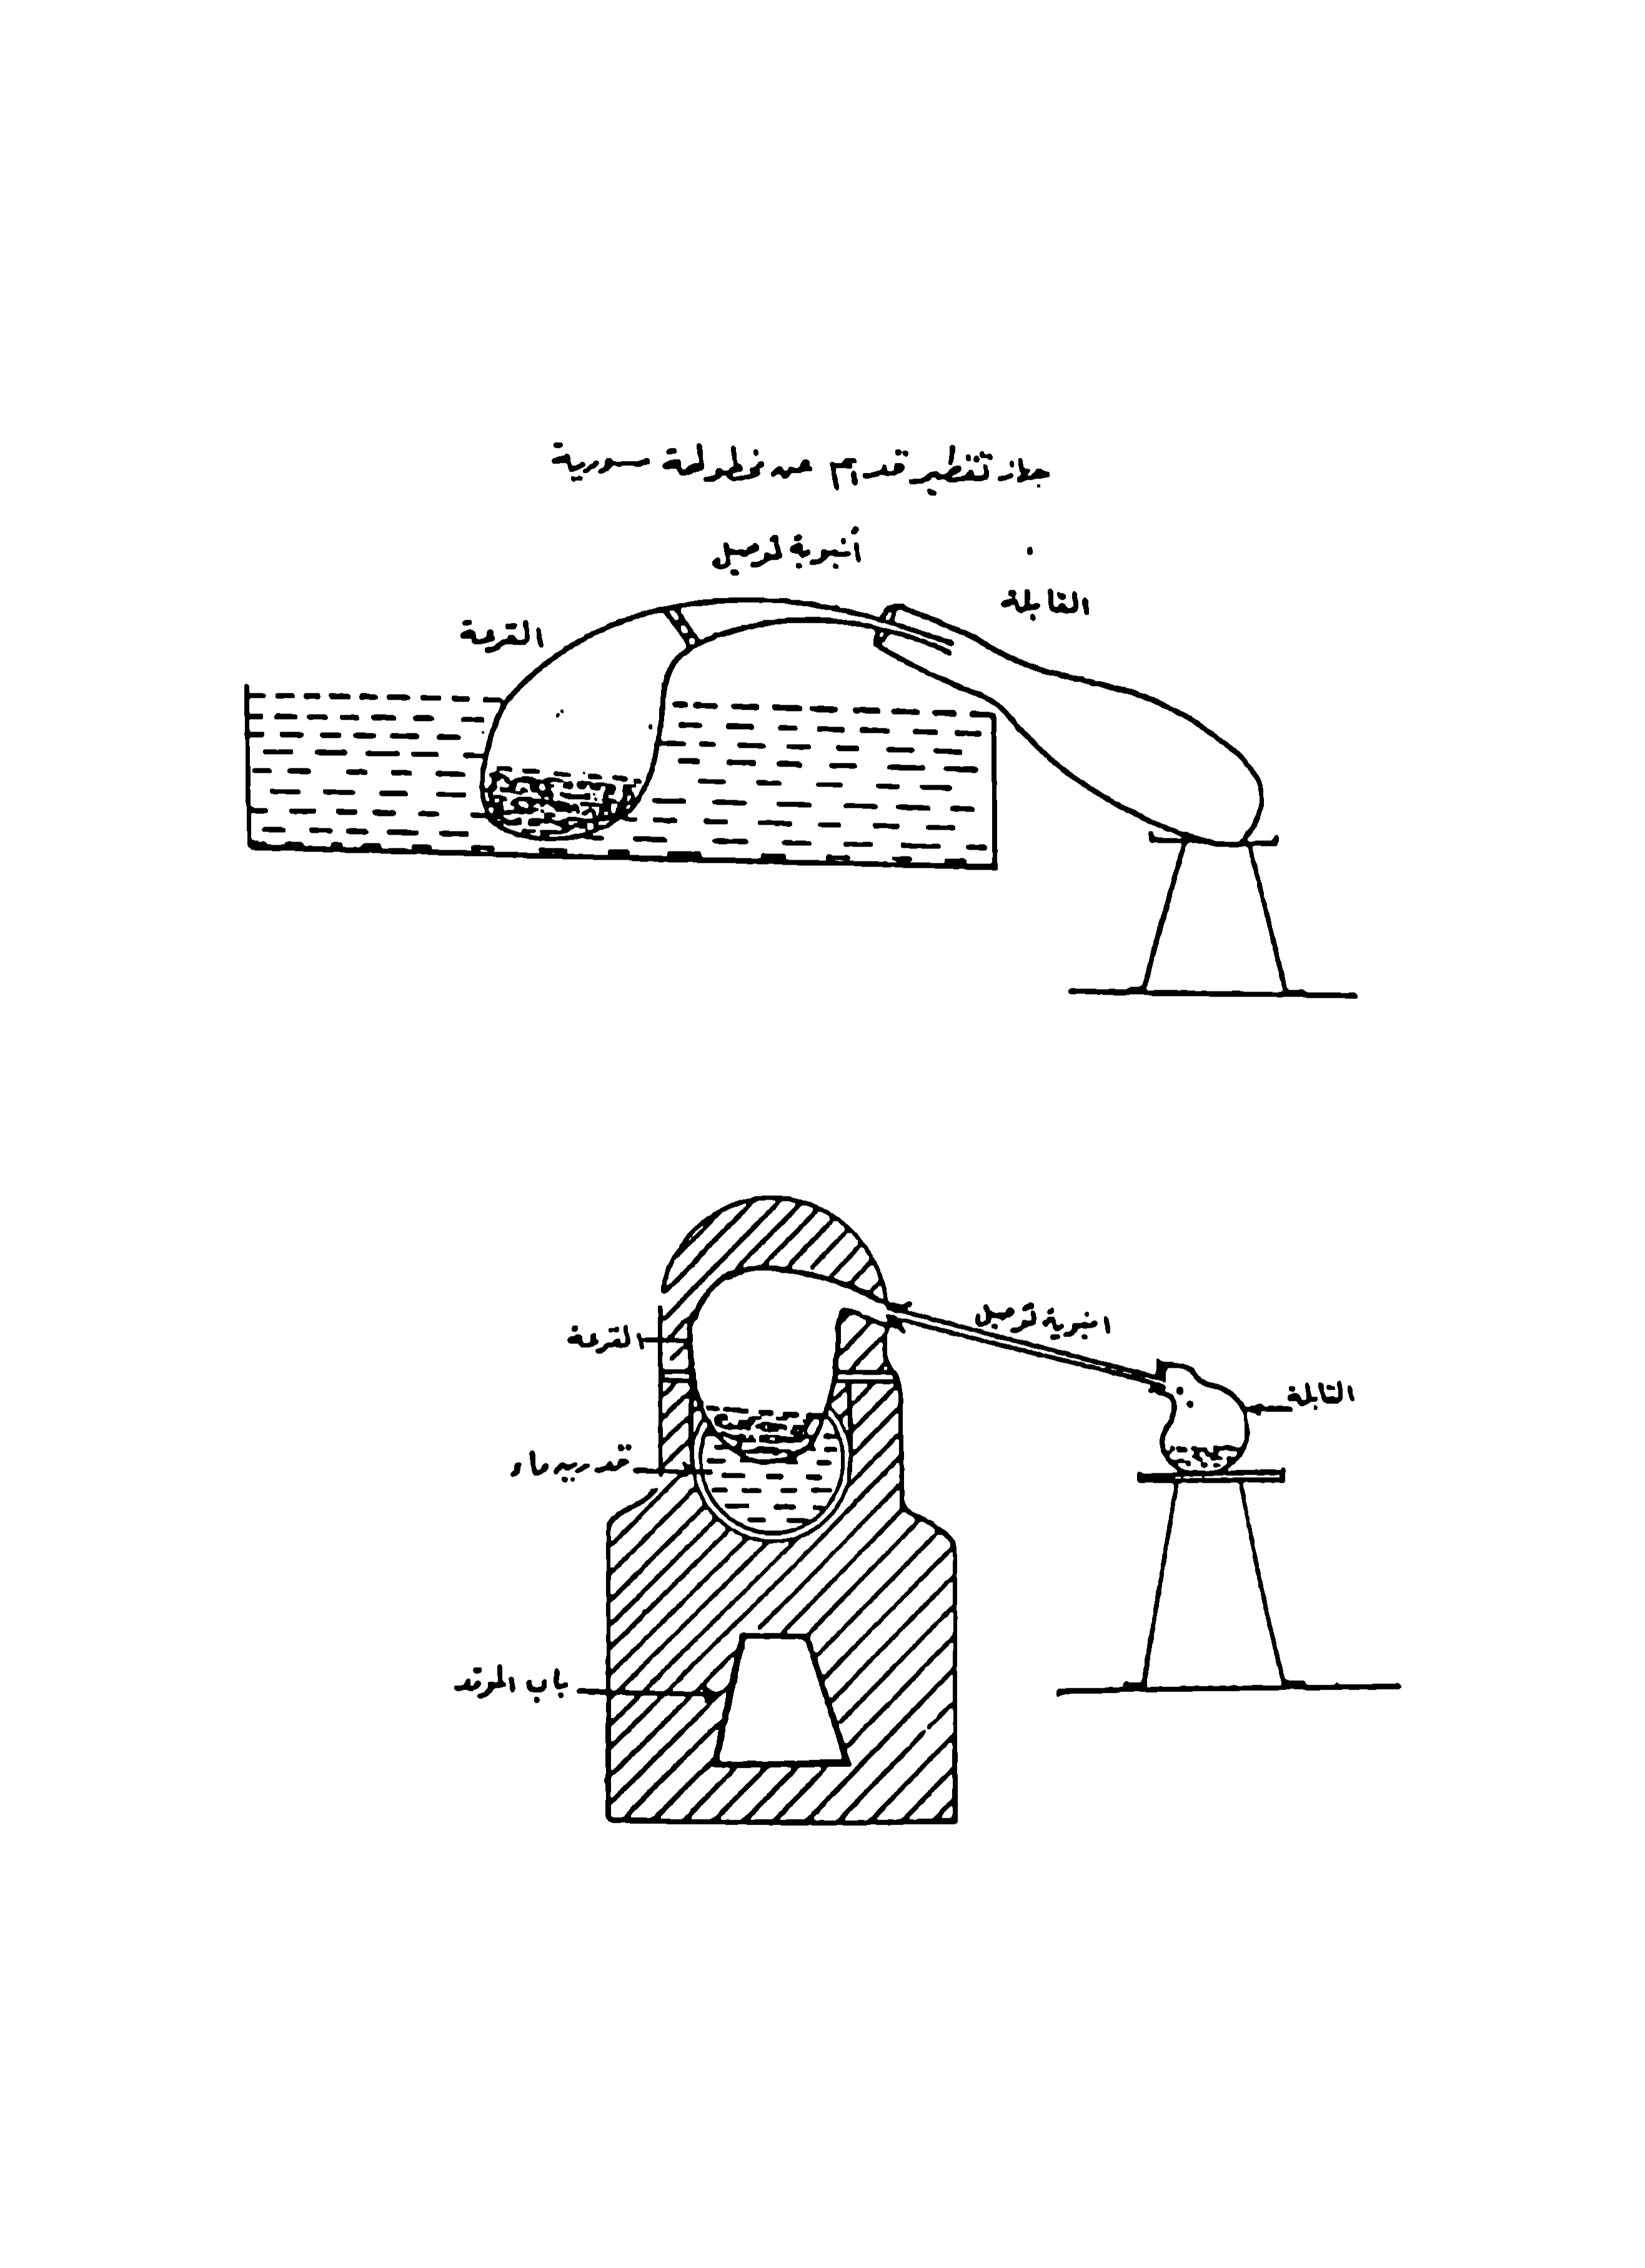 جهاز تقطير قديم عن مخطوطة سورية
أنبوبة توصيل
القابلة
القرعة
انبوبة توصيل
القرعة
القابلة
قدر به ماء
باب الموقد